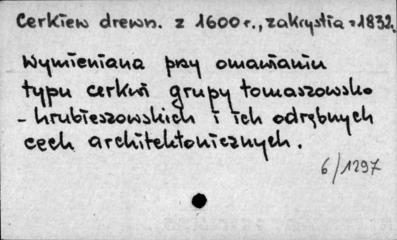 Cerkiew drewn. z 1600 r., zakrystia z 1832.
Wymieniana przy omawianiu
typu cerkwi grupy tomaszowsko
- hrubieszowskich i ich odrębnych
cech architektonicznych.
6/1297